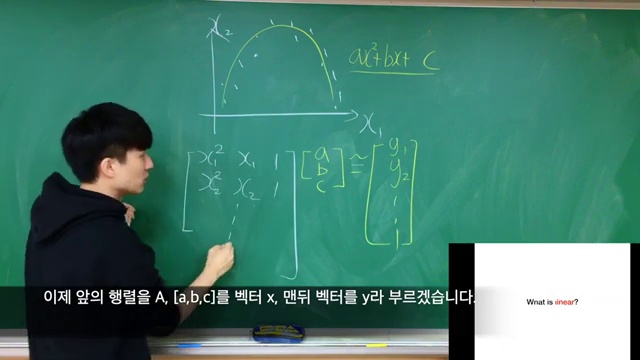 x₂
ax²+bx+ c
x₁
x₁² x₁ 1 a y₁
x₂² x₂ 1 b ≃ y₂
c
이제 앞의 행렬을 A, [a,b,c]를 벡터 x, 맨뒤 벡터를 y라 부르겠습니다.
What is linear?